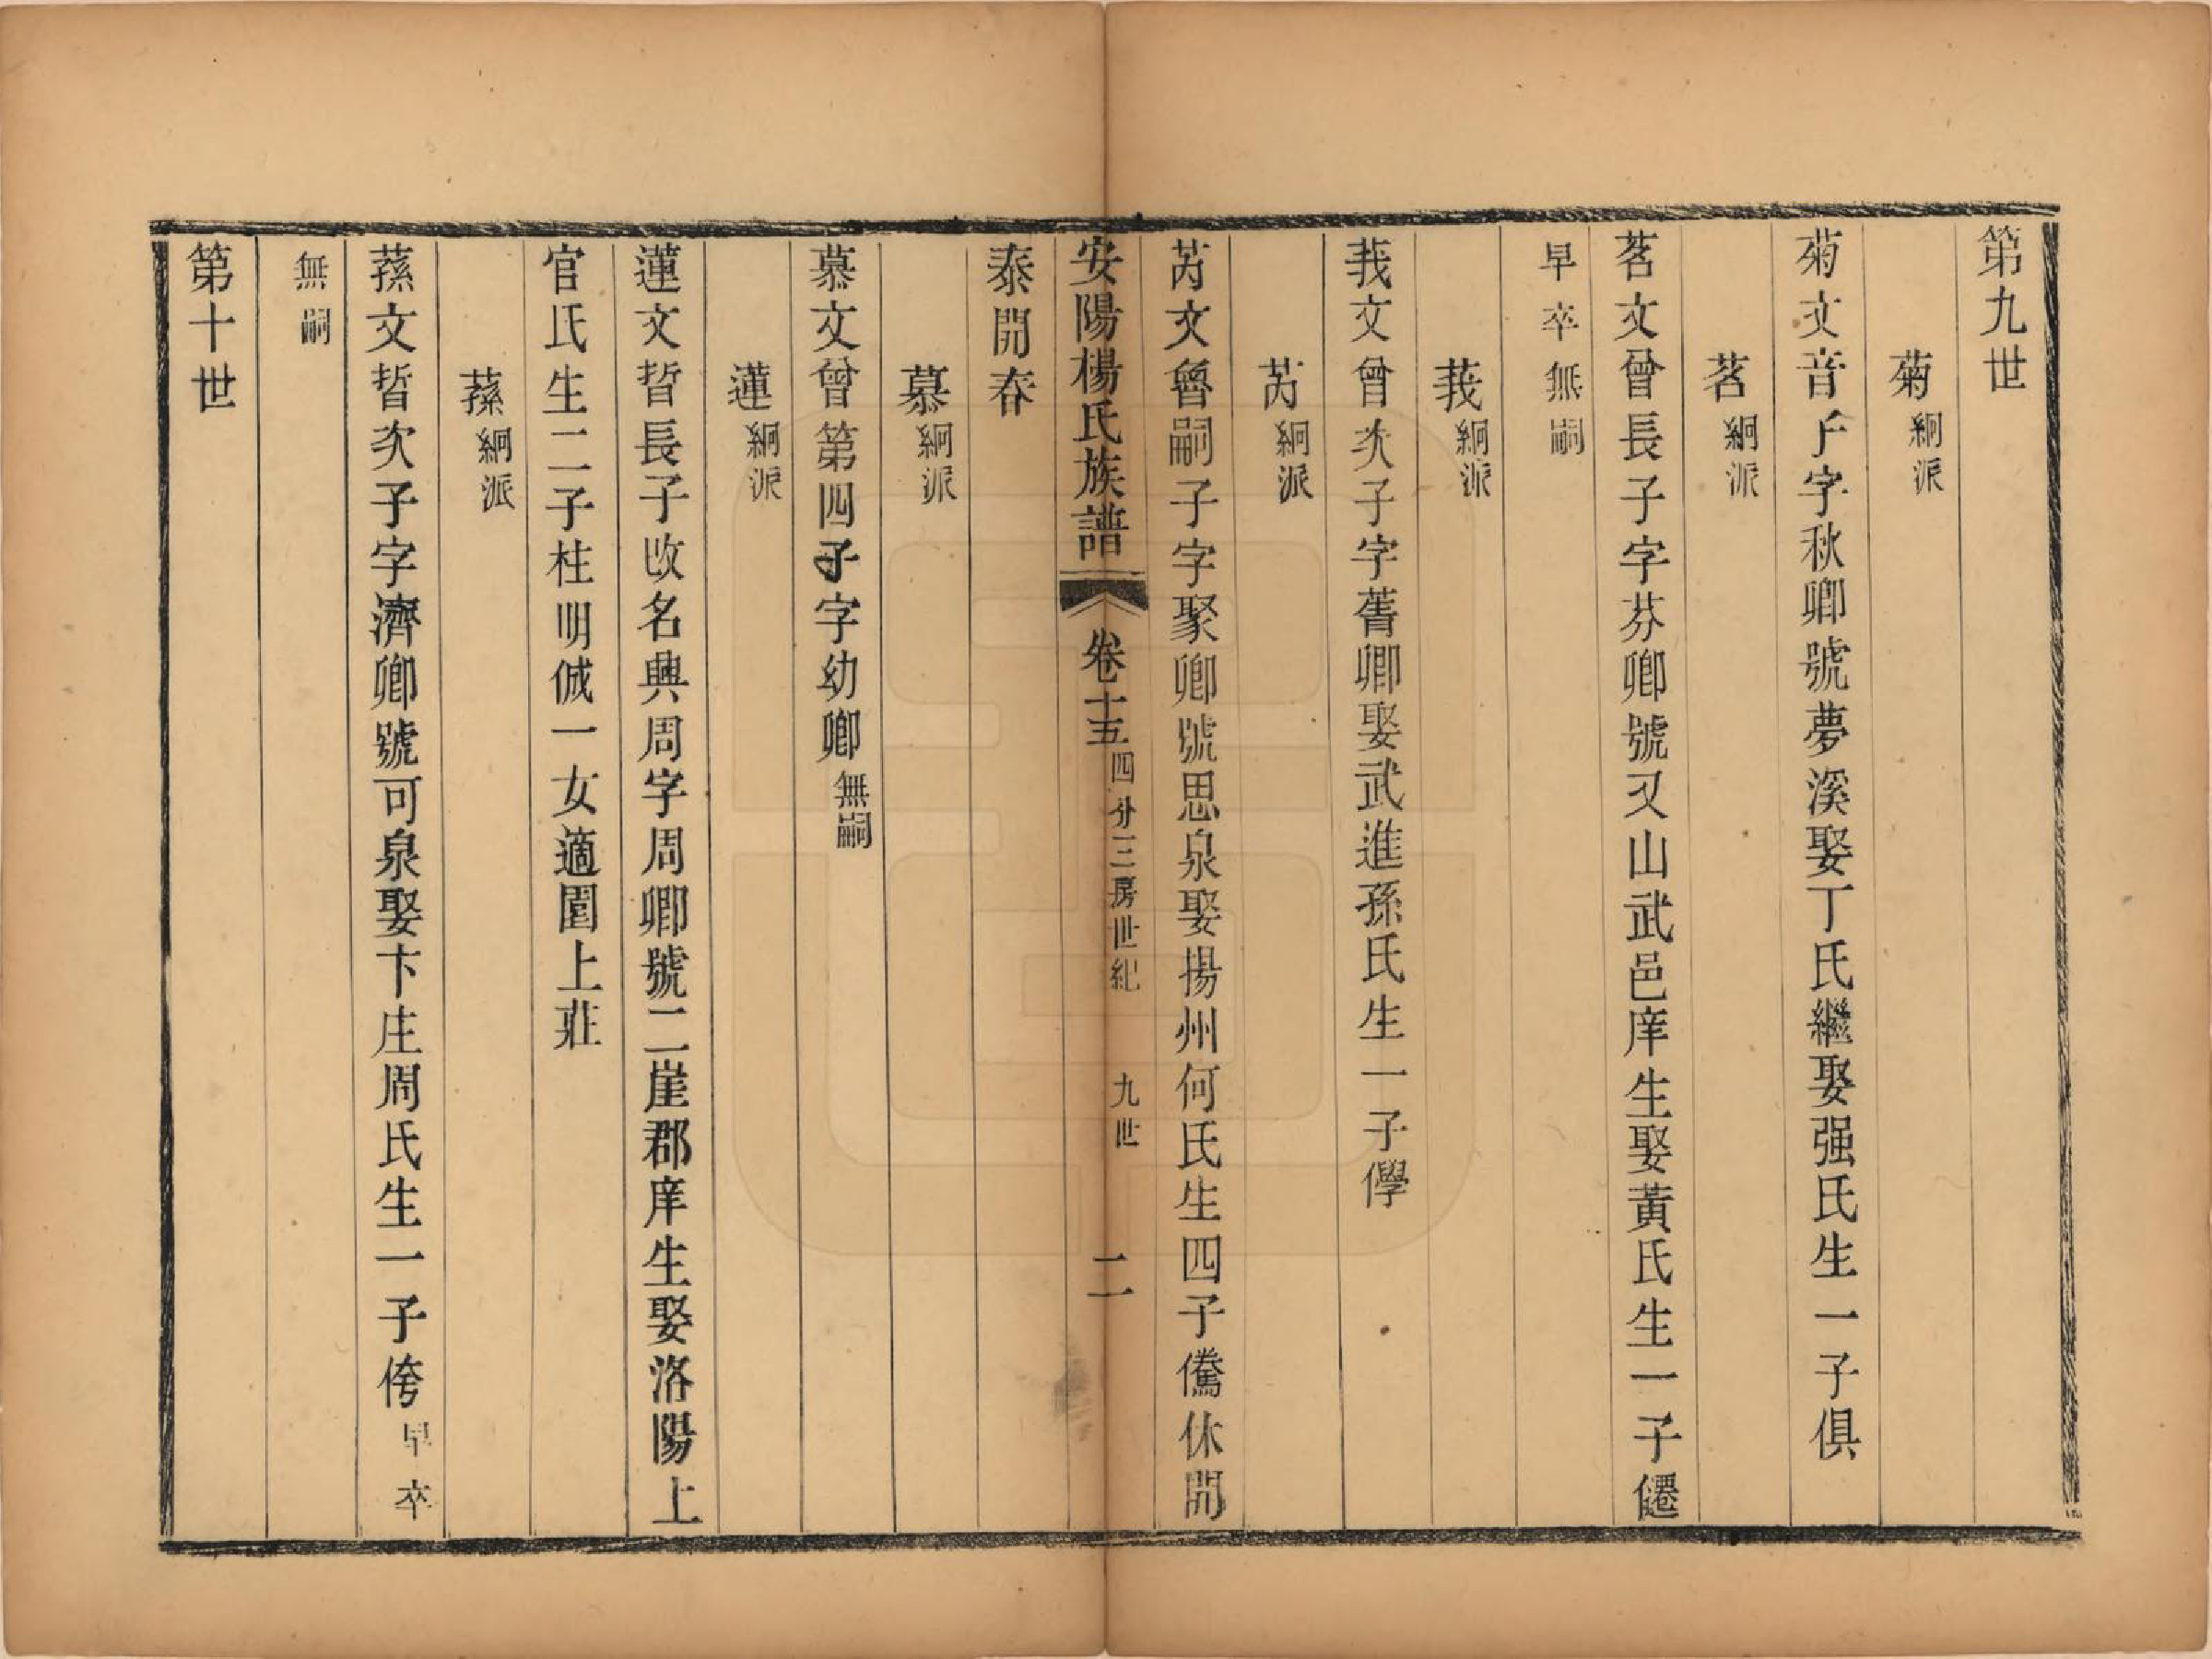 第九世
菊絅派
菊文音子字秋卿號夢溪娶丁氏繼娶强氏生一子俱
茗絅派
茗文曾長子字芬卿號又山武邑庠生娶黃氏生一子僊
早卒無嗣
莪絅派
莪文曾次子字菁卿娶武進孫氏生一子㒅
芮絅派
芮文魯嗣子字聚卿號思泉娶揚州何氏生四子儁休開
安陽楊氏族譜 卷十五 四分三房世紀 九世 二
泰開春
慕絅派
慕文曾第四子字幼卿無嗣
蓮絅派
蓮文晳長子改名興周字周卿號二崖郡庠生娶洛陽上
官氏生二子柱明俄一女適圍上莊
蓀絅派
蓀文晳次子字濟卿號可泉娶卞庄周氏生一子侉早卒
無嗣
第十世